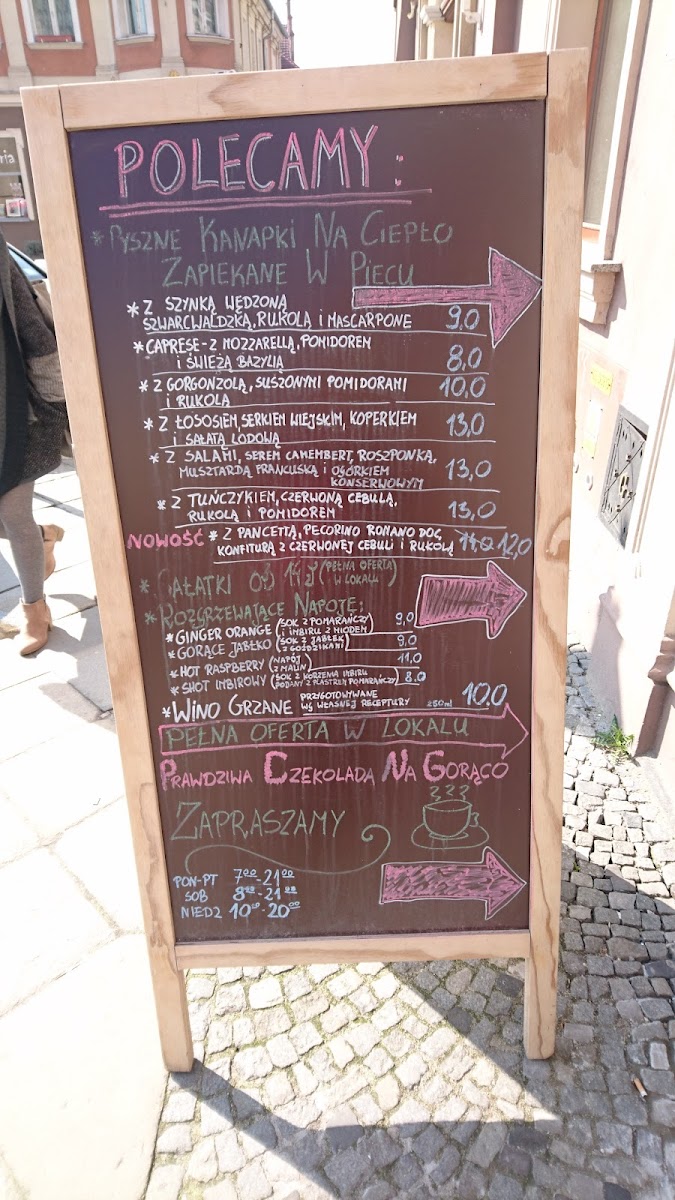 ria
POLECAMY:
* PYSZNE KANAPKI NA CIEPŁO
ZAPIEKANE W PIECU
* Z SZYNKĄ WĘDZONĄ
SZWARCWALDZKĄ, RUKOLĄ i MASCARPONE 9,0
* CAPRESE - Z MOZZARELLĄ, POMIDOREM
i ŚWIEŻĄ BAZYLIĄ 8,0
* Z GORGONZOLĄ, SUSZONYMI POMIDORAMI
i RUKOLĄ 10,0
* Z ŁOSOSIEM, SERKIEM WIEJSKIM, KOPERKIEM
i SAŁATĄ LODOWĄ 13,0
* Z SALAMI, SEREM CAMEMBERT, ROSZPONKĄ,
MUSZTARDĄ FRANCUSKĄ i OGÓRKIEM
KONSERWOWYM 13,0
* Z TUŃCZYKIEM, CZERWONĄ CEBULĄ,
RUKOLĄ i POMIDOREM 13,0
NOWOŚĆ * Z PANCETTĄ, PECORINO ROMANO DOC,
KONFITURĄ Z CZERWONEJ CEBULI i RUKOLĄ 12,0
* SAŁATKI OD 14 zł (PEŁNA OFERTA
W LOKALU)
* ROZGRZEWAJĄCE NAPOJE:
* GINGER ORANGE (SOK Z POMARAŃCZY
i IMBIRU Z MIODEM) 9,0
* GORĄCE JABŁKO (SOK Z JABŁEK
Z GOŹDZIKAMI) 9,0
* HOT RASPBERRY (NAPÓJ
Z MALIN) 11,0
* SHOT IMBIROWY (SOK Z KORZENIA IMBIRU
PODANY Z PLASTREM POMARAŃCZY) 8,0
* WINO GRZANE PRZYGOTOWYWANE
WG WŁASNEJ RECEPTURY 250ml 10,0
PEŁNA OFERTA W LOKALU
PRAWDZIWA CZEKOLADA NA GORĄCO
ZAPRASZAMY
PON-PT 700-2100
SOB 800-2100
NIEDZ 1000-2000